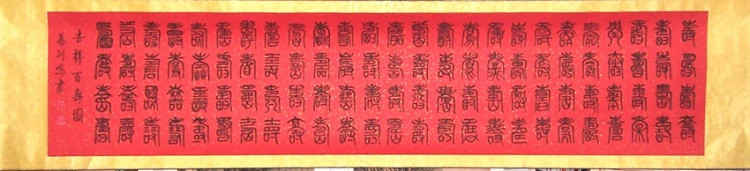 壽壽壽壽
壽壽壽壽
壽壽壽壽
壽壽壽壽
壽壽壽壽
壽壽壽壽
壽壽壽壽
壽壽壽壽
壽壽壽壽
壽壽壽壽
壽壽壽壽
壽壽壽壽
壽壽壽壽
壽壽壽壽
壽壽壽壽
壽壽壽壽
壽壽壽壽
壽壽壽壽
壽壽壽壽
壽壽壽壽
壽壽壽壽
壽壽壽壽
壽壽壽壽
壽壽壽壽
壽壽壽壽
吉祥百寿图
書